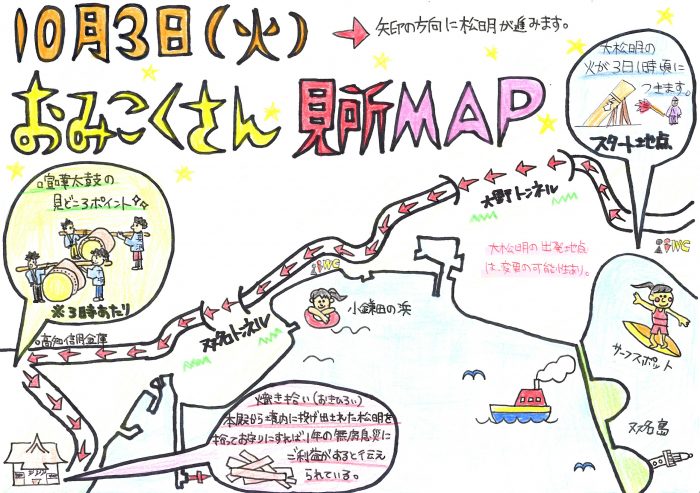 10月3日(火)
→ 矢印の方向に松明が進みます。
おみこくさん 見所MAP
大松明の
火が3日1時頃に
つきます。
スタート地点
喧嘩太鼓の
見どころポイント
※3時あたり
大野トンネル
WC
大松明の出発地点
は、変更の可能性有り。
WC
小鎌田の浜
双名トンネル
高知信用金庫
サーフスポット
双名島
焼き拾い(おきひろい)
本殿から境内に投げ出された松明を
拾ってお守りにすれば1年の無病息災に
ご利益があると伝え
られている。